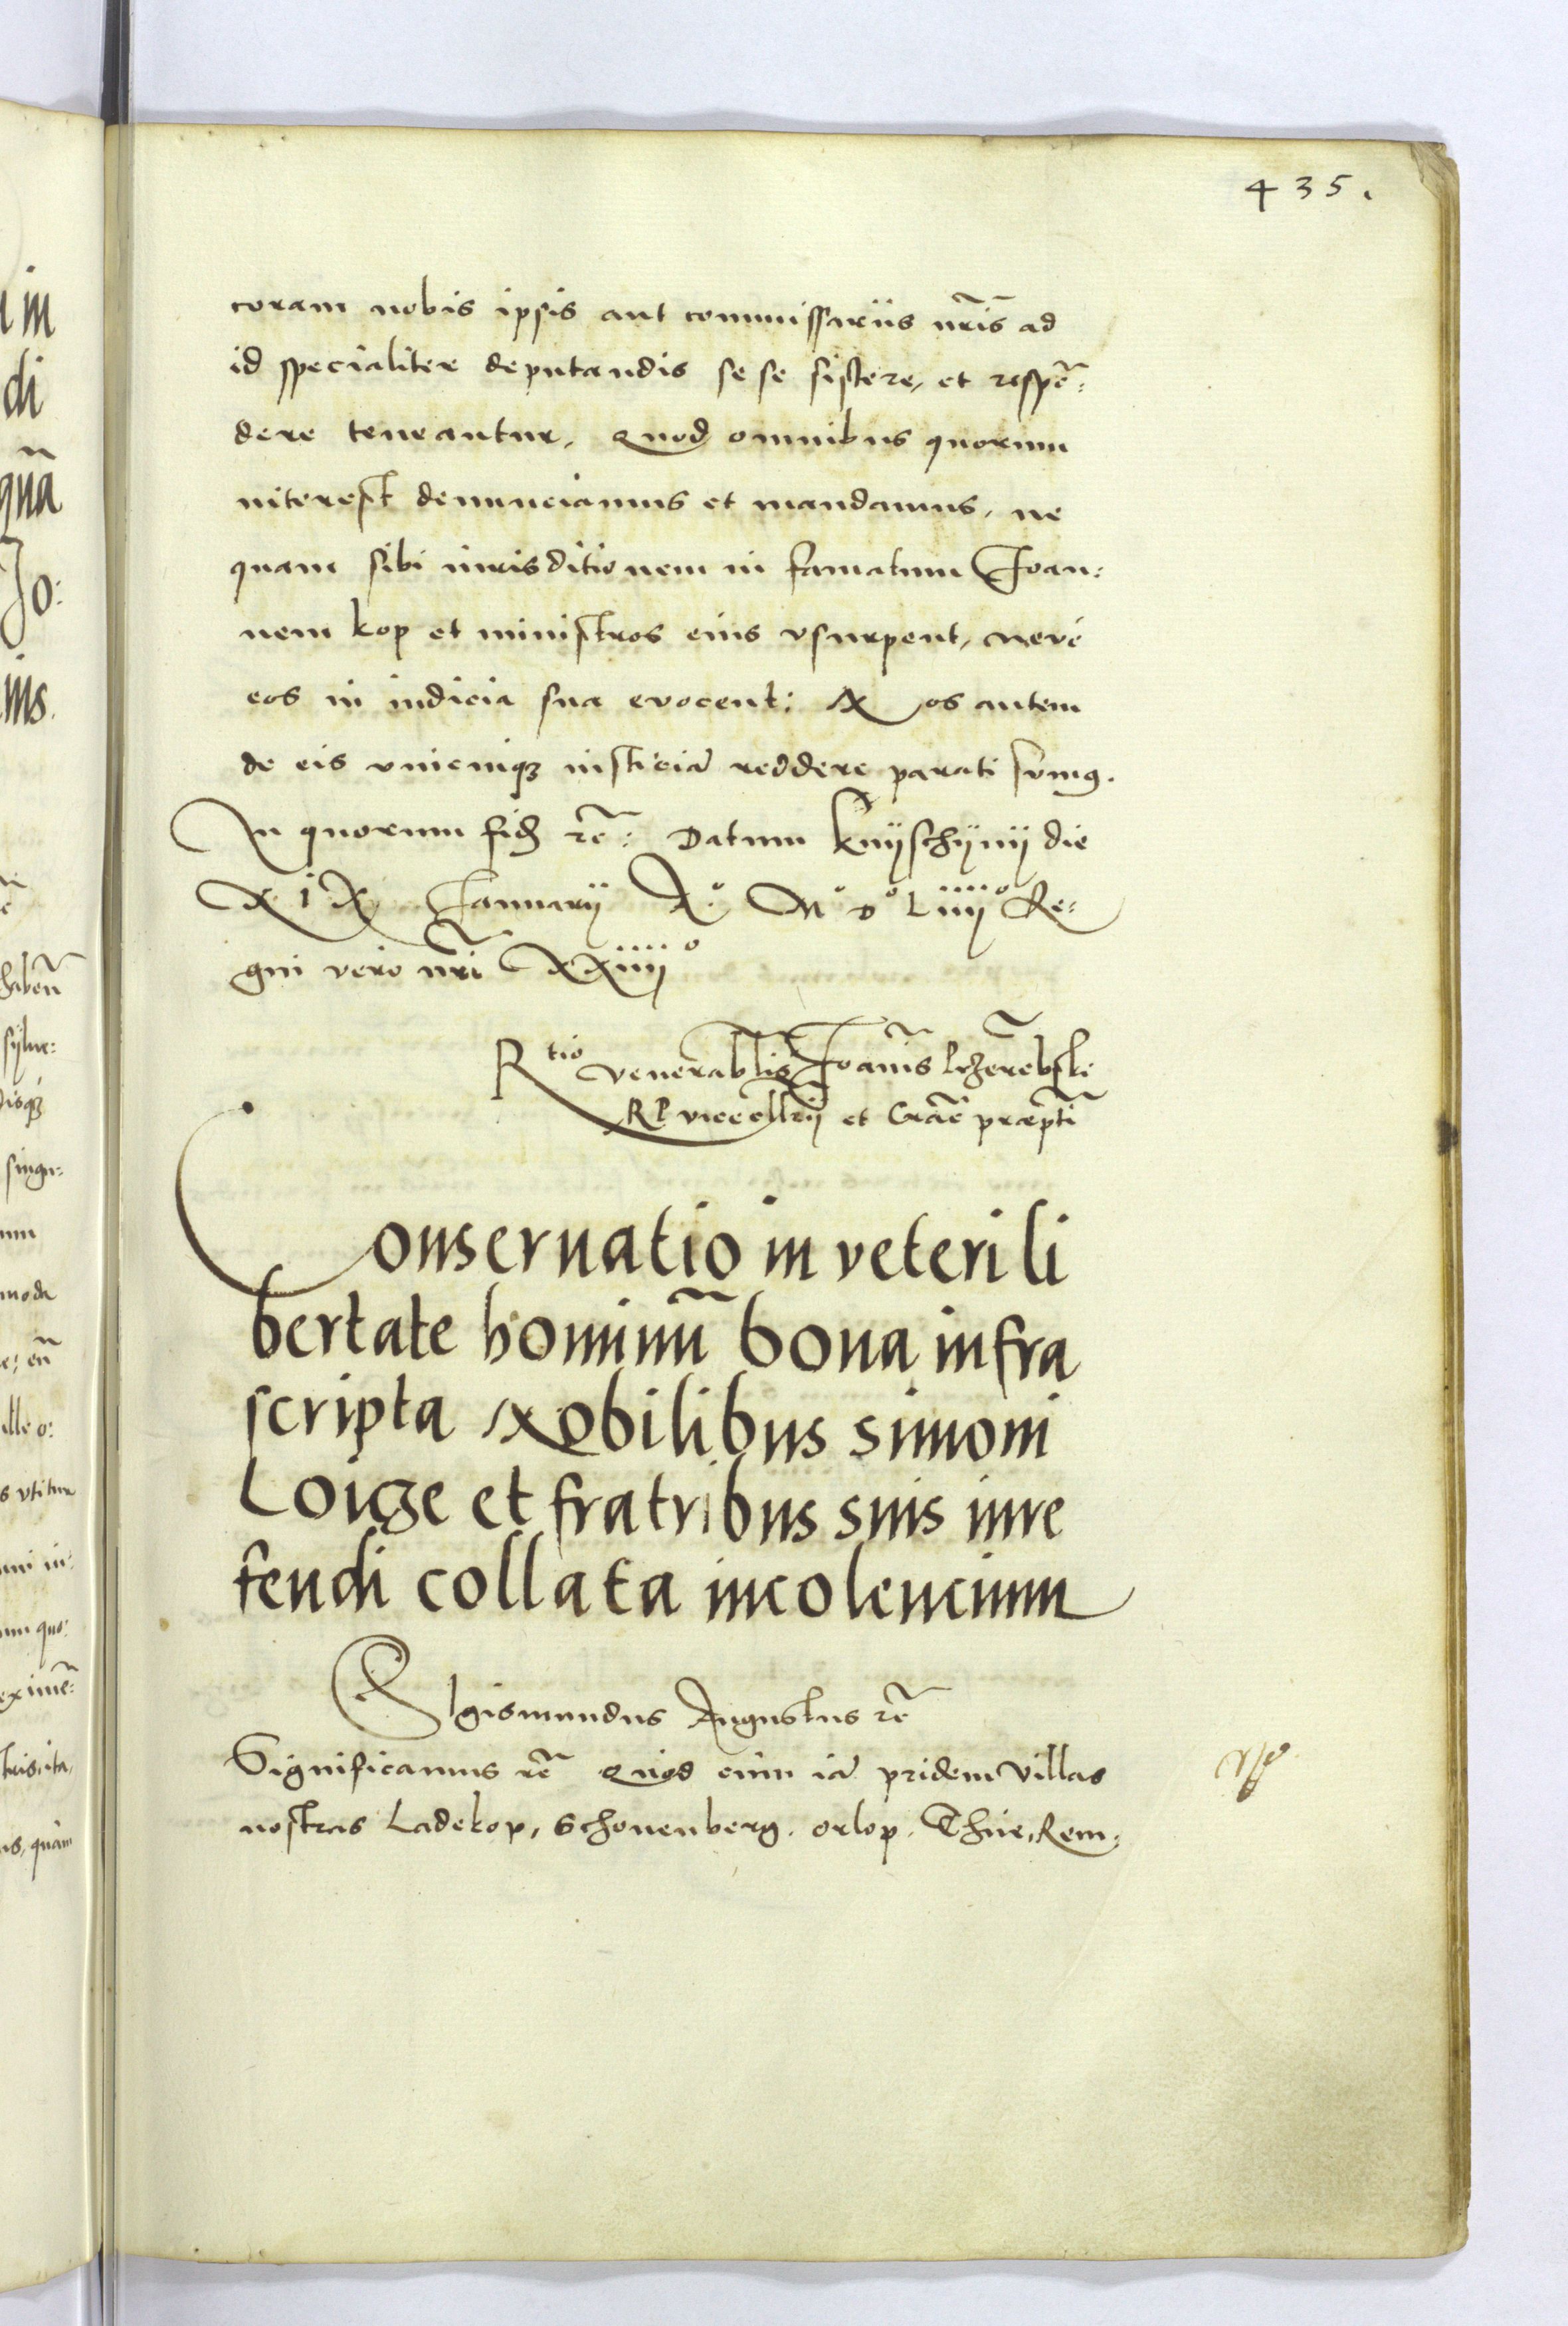 435.
coram nobis ipsis aut commissariis nr̃is ad
id specialiter deputandis se se sistere, et respõ:
dere teneantur, Quod omnibus quorum
interest denunciamus et mandamus, ne
quam sibi iurisditionem in famatum Joan:
nem kop et ministros eius vsurpent, neve
eos in iudicia sua evocent: Nos autem
de eis vnicuiqȝ iusticiã reddere parati sumus.
In quorum fid̃ rẽ: Datum Knÿschÿnÿ die
XIX Januarÿ A.° M° D° Liiii° Re:
gni vero nr̃i XXiiii°
Rtio venerablis Joannis Przerebski
RP vicecllrÿ et Crac̃ præpti
Conseruatio in veteri li
bertate hominũ bona infra
scripta Nobilibus simoni
Loize et fratribus suis iure
feudi collata incolencium
SIgismundus Augustus rẽ
Significamus rẽ Quod cum iã pridem villas
nostras Ladekop, Schonenberg. orlop. Thiie, Rem: